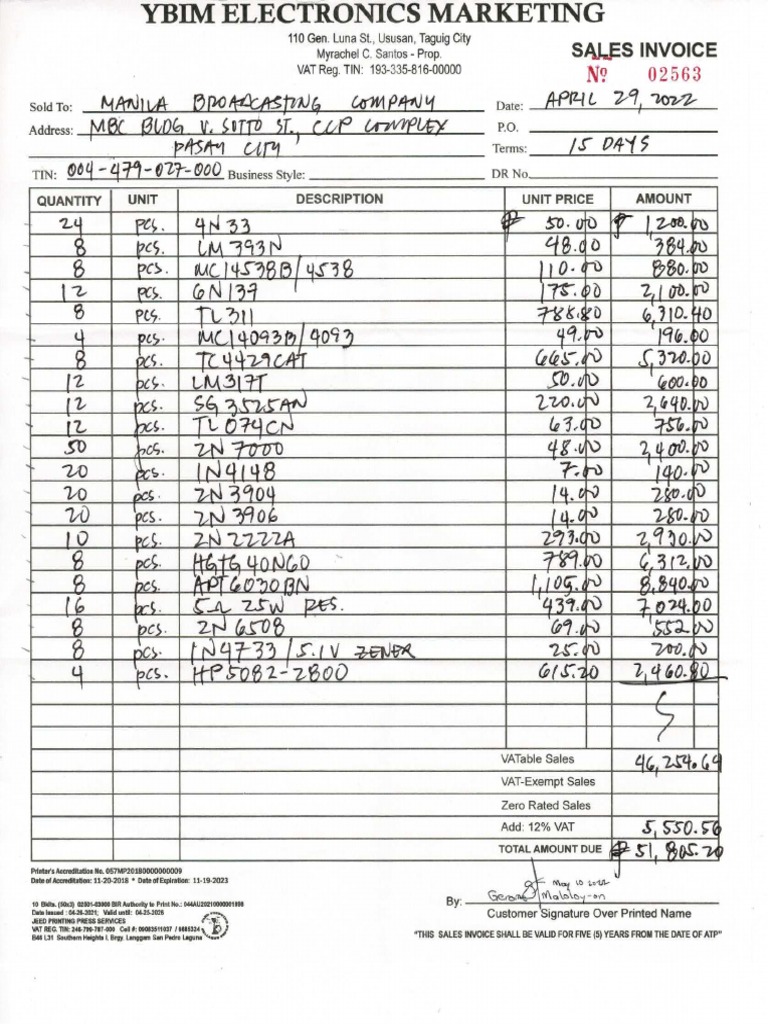 YBIM ELECTRONICS MARKETING
110 Gen. Luna St., Ususan, Taguig City
Myrachel C. Santos - Prop.
VAT Reg. TIN: 193-335-816-00000
SALES INVOICE
Nº 02563
Sold To: MANILA BROADCASTING COMPANY Date: APRIL 29, 2022
Address: MBC BLDG V. SOTTO ST., CCP COMPLEX P.O.
PASAY CITY Terms: 15 DAYS
TIN: 004-479-027-000 Business Style: DR No.
QUANTITY UNIT DESCRIPTION UNIT PRICE AMOUNT
24 pcs. 4N33 ₱ 50.00 ₱ 1,200.00
8 pcs. LM 393N 48.00 384.00
8 pcs. MC14538B/4538 110.00 880.00
12 pcs. 6N137 175.00 2,100.00
8 pcs. TL311 788.80 6,310.40
4 pcs. MC14093B/4093 49.00 196.00
8 pcs. TC4429CAT 665.00 5,320.00
12 pcs. LM317T 50.00 600.00
12 pcs. SG3525AN 220.00 2,640.00
12 pcs. TL074CN 63.00 756.00
50 pcs. 2N7000 48.00 2,400.00
20 pcs. 1N4148 7.00 140.00
20 pcs. 2N3904 14.00 280.00
20 pcs. 2N3906 14.00 280.00
10 pcs. 2N2222A 293.00 2,930.00
8 pcs. HGTG40N60 789.00 6,312.00
8 pcs. APT6030BN 1,105.00 8,840.00
16 pcs. 5Ω 25W RES. 439.00 7,024.00
8 pcs. 2N6508 69.00 552.00
8 pcs. 1N4733/5.1V ZENER 25.00 200.00
4 pcs. HP5082-2800 615.20 2,460.80
VATable Sales 46,254.64
VAT-Exempt Sales
Zero Rated Sales
Add: 12% VAT 5,550.56
TOTAL AMOUNT DUE ₱ 51,805.20
Printer's Accreditation No. 057MP20180000000009
Date of Accreditation: 11-20-2018 * Date of Expiration: 11-19-2023
May 10 2022
By:
Customer Signature Over Printed Name
10 Bklts. (50x3) 02501-03000 BIR Authority to Print No.:
Date Issued : 04-26-2021; Valid until: 04-25-2026
JEED PRINTING PRESS SERVICES
VAT REG. TIN: 246-799-787-000 Cell #: 09083511037
B44 L31 Southern Heights I, Brgy. Langgam San Pedro Laguna
"THIS SALES INVOICE SHALL BE VALID FOR FIVE (5) YEARS FROM THE DATE OF ATP"